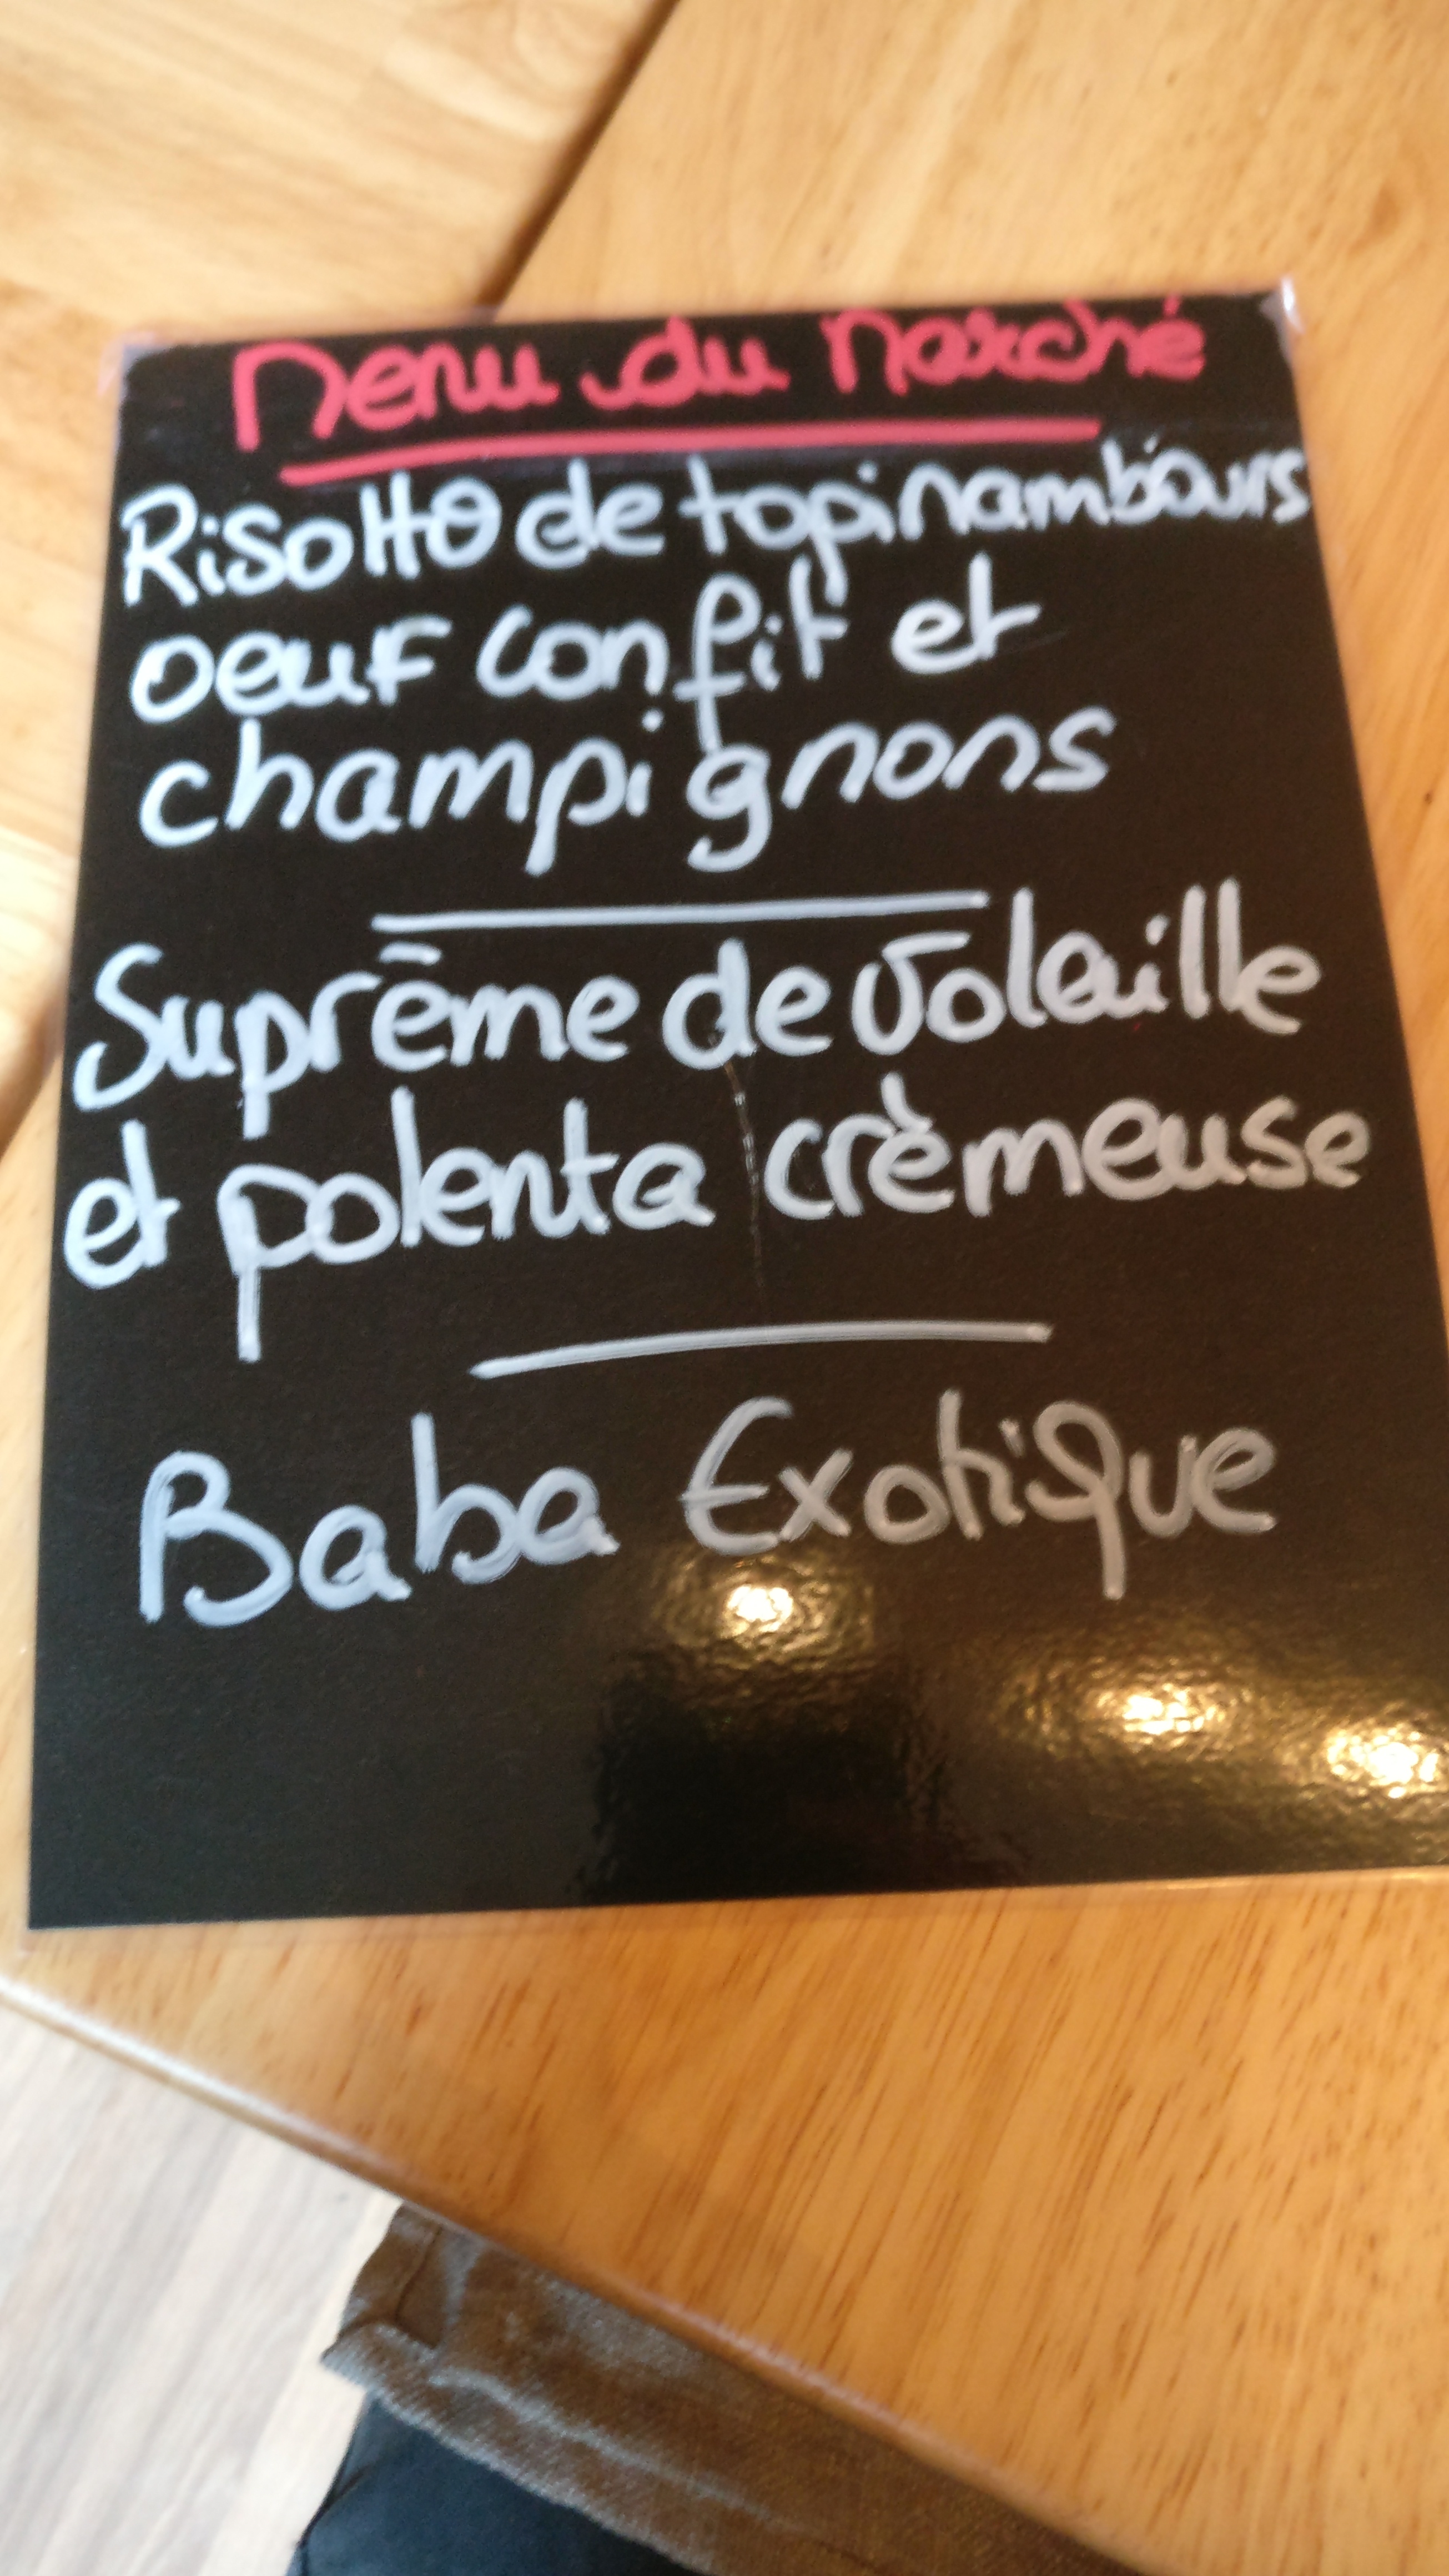 Menu du Marché
Risotto de topinambours
oeuf confit et
champignons
Suprême de volaille
et polenta crèmeuse
Baba Exotique